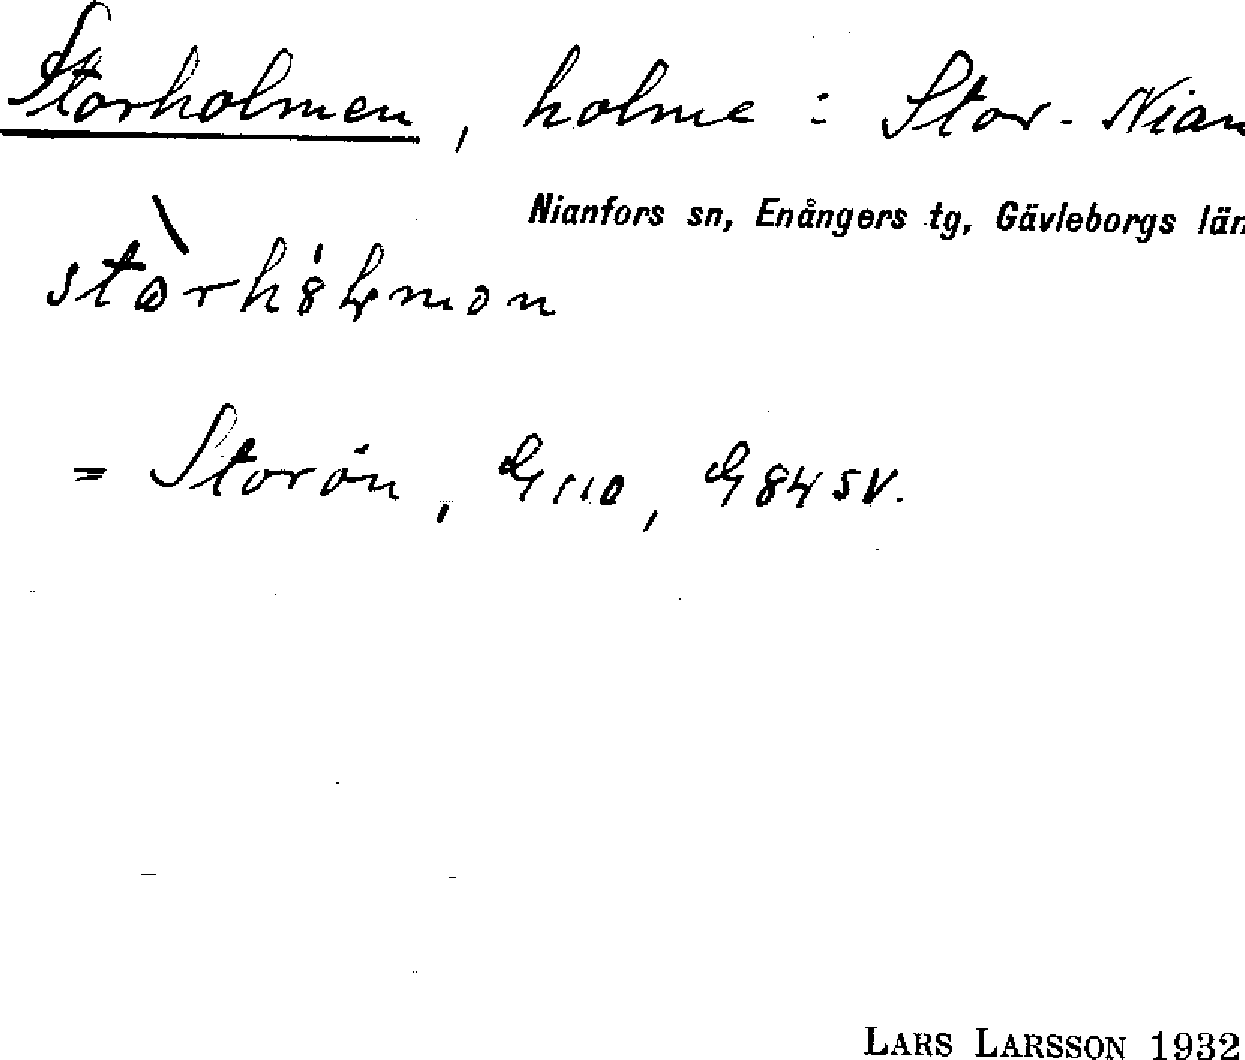 Storholmen, holme i Stor-Nian
Nianfors sn, Enångers tg, Gävleborgs län
= Storön, G 110, G 84 SV.
LARS LARSSON 1932